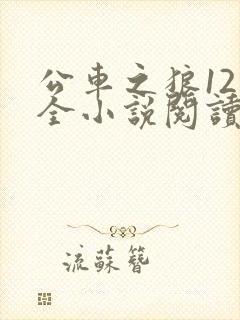 公車之狼12
全小説閱讀
流蘇簪